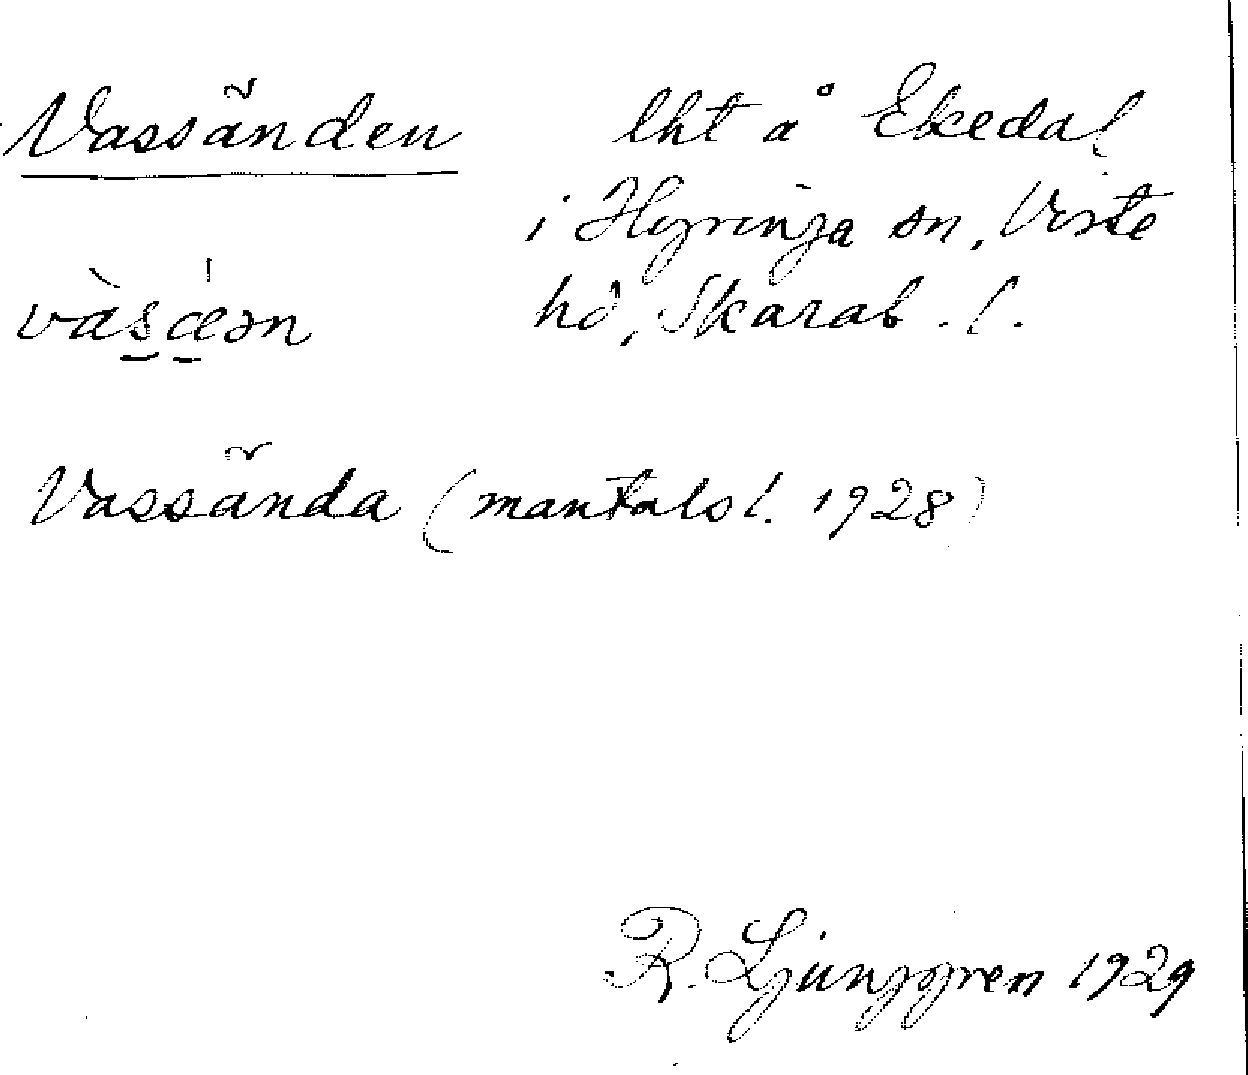 Vassänden lht å Ekedal
i Hyringa sn, Viste
hd, Skarab. l.
vàsæ̀ən
Vassända (mantalsl. 1928)
R. Ljunggren 1929